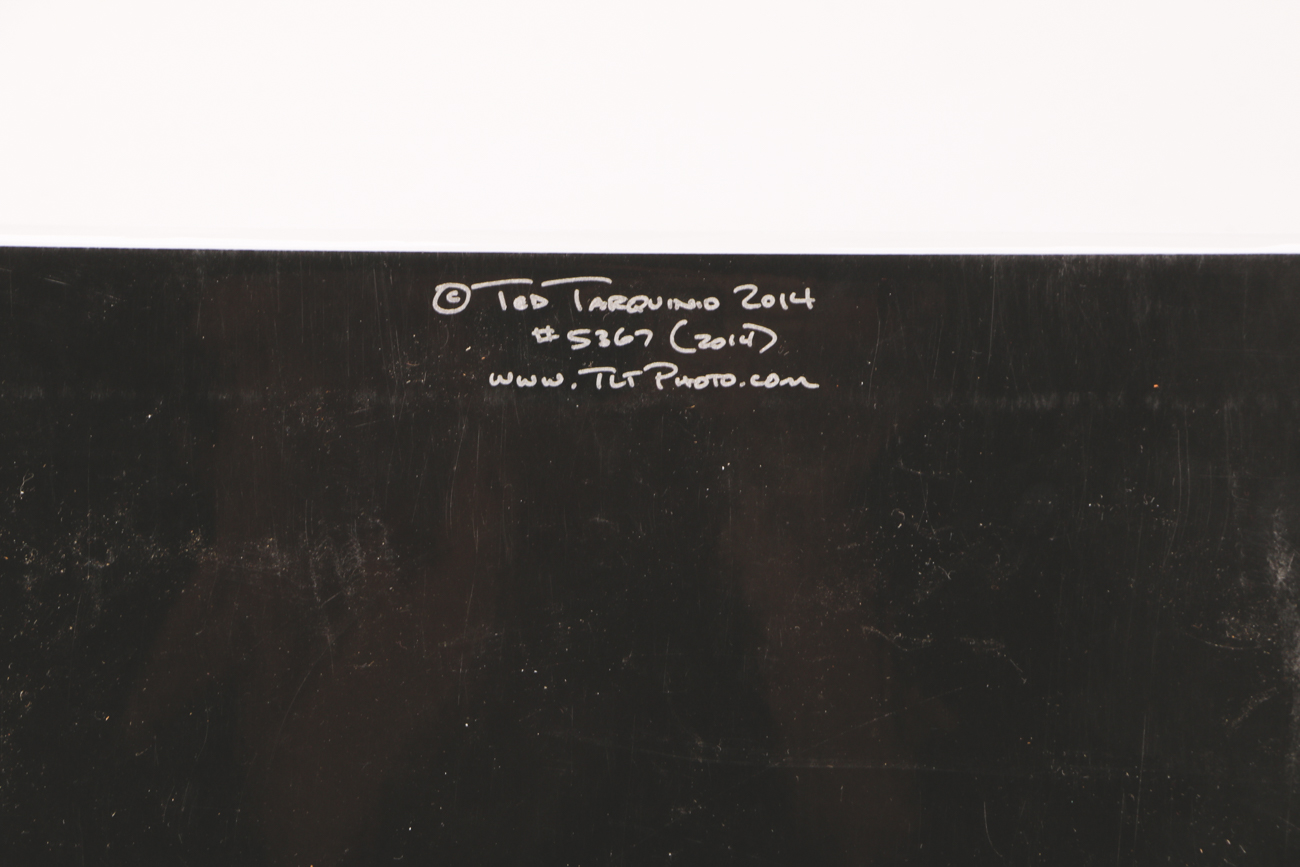 © Ted Tarquinio 2014
#5367 (2014)
www.TLTPhoto.com